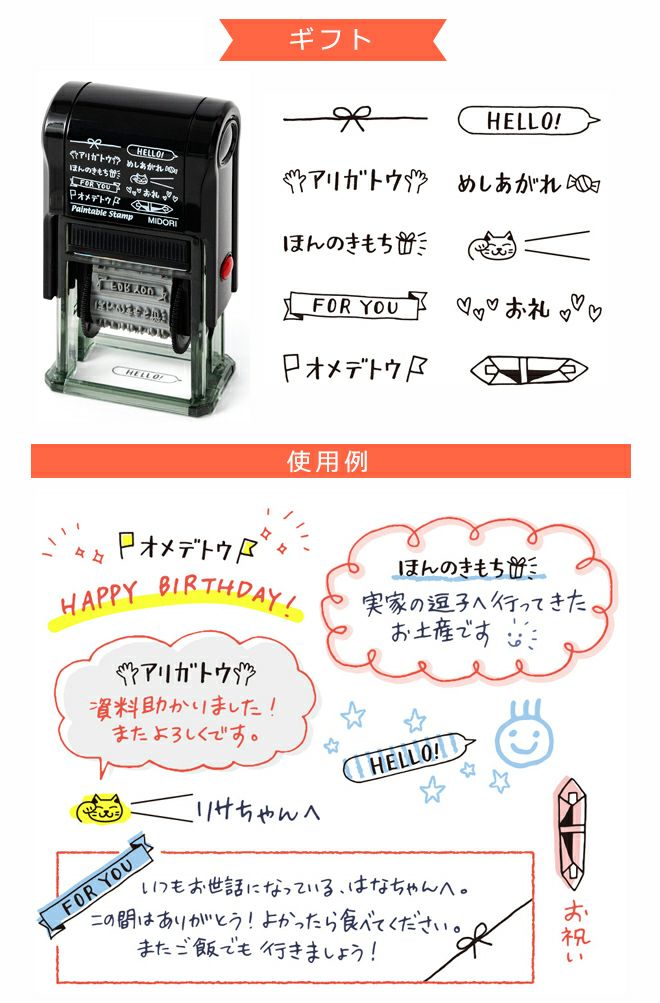 ギフト
HELLO!
アリガトウ
ほんのきもち
めしあがれ
FOR YOU
お礼
オメデトウ
Paintable Stamp
MIDORI
FOR YOU
ほんのきもち
HELLO!
HELLO!
アリガトウ
めしあがれ
ほんのきもち
FOR YOU
お礼
オメデトウ
使用例
オメデトウ
HAPPY BIRTHDAY!
ほんのきもち
実家の逗子へ行ってきた
お土産です
アリガトウ
資料助かりました!
またよろしくです。
HELLO!
リサちゃんへ
お祝い
FOR YOU
いつもお世話になっている、はなちゃんへ。
この間はありがとう!よかったら食べてください。
またご飯でも行きましょう!